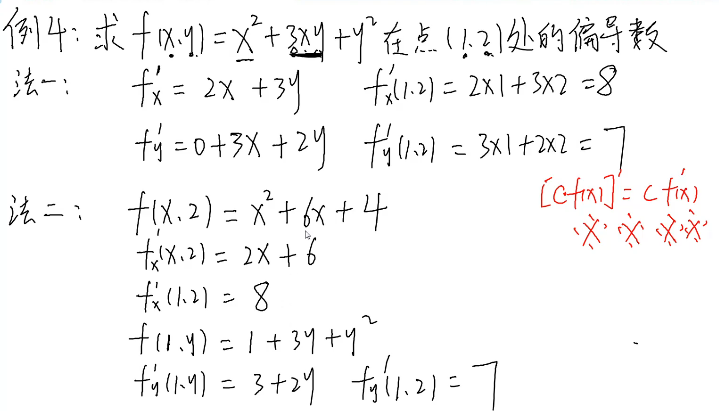 例4: 求 f(x.y) = x² + 3xy + y² 在点(1.2)处的偏导数
法一: f'x = 2x + 3y f'x(1.2) = 2×1+3×2 = 8
f'y = 0+3x+2y f'y(1.2) = 3×1+2×2 = 7
[c f(x)]' = c f'(x)
法二: f(x.2) = x² + 6x + 4
f'x(x.2) = 2x + 6
f'x(1.2) = 8
f(1.y) = 1 + 3y + y²
f'y(1.y) = 3 + 2y f'y(1.2) = 7